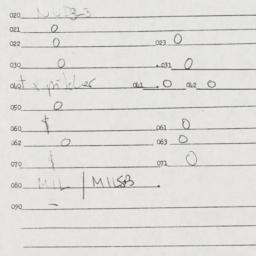 020
021 0
022 0 023 0
030 0 031 0
040 t x pitcher 041 0 042 0
050 0
060 1 061 0
062 0 063 0
070 1 071 0
080 MIL / MILSB
090 –